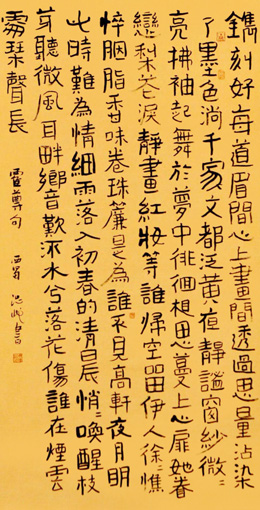 鐫刻好每道眉間心上畫間透過思量沾染
了墨色淌千家文都泛黃夜靜謐窗紗微〻
亮拂袖起舞於夢中徘徊想思蔓上心扉她眷
戀梨花淚靜畫紅妝等誰歸空留伊人徐〻憔
悴胭脂香味卷珠簾是為誰不見高軒夜月明
此時難為情細雨落入初春的清晨悄〻喚醒枝
芽聽微風耳畔鄉音歎流水兮落花傷誰在煙雲
處琴聲長
霍尊句 西蜀